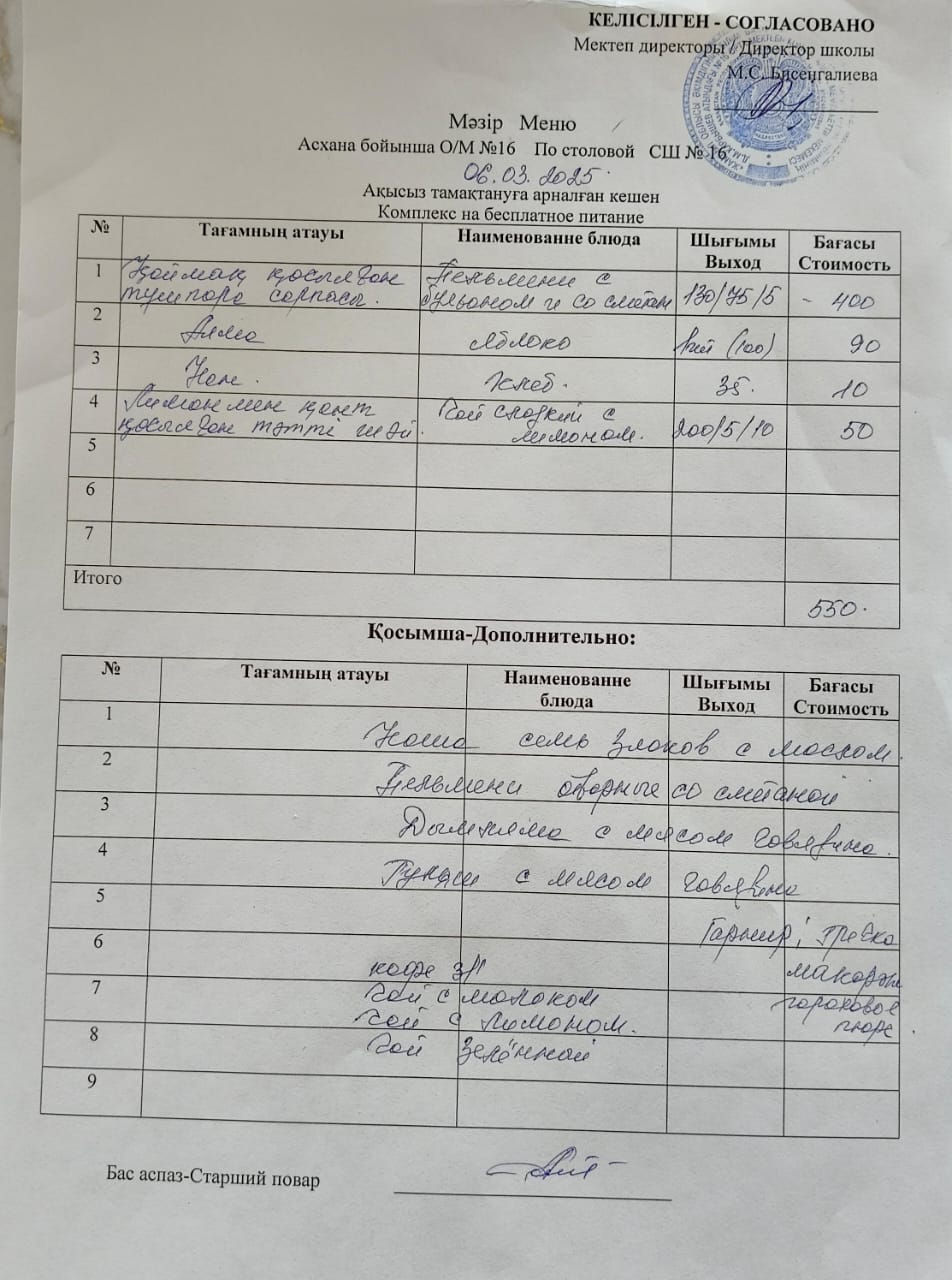 КЕЛІСІЛГЕН - СОГЛАСОВАНО
Мектеп директоры / Директор школы
М.С. Бисенгалиева
Мәзір Меню
Асхана бойынша О/М №16 По столовой СШ № 16
06.03.2025.
Ақысыз тамақтануға арналған кешен
Комплекс на бесплатное питание
№ Тағамның атауы Наименование блюда Шығымы Выход Бағасы Стоимость
1 Қаймақ қосылған тұшпара сорпасы. Пельмени с бульоном и со сметан 130/75/5 - 400
2 Алма Яблоко 1шт (100) 90
3 Нан. Хлеб. 35. 10
4 Лимон мен қант қосылған тәтті шәй. Чай сладкий с лимоном. 200/5/10 50
5
6
7
Итого 550.
Қосымша-Дополнительно:
№ Тағамның атауы Наименование блюда Шығымы Выход Бағасы Стоимость
1 Каша семь злаков с маслом.
2 Пельмени отварные со сметаной
3 Дымляма с мясом говядина.
4 Гуляш с мясом говядина
5 Гарнир: гречка
6 кофе 3/1 макароны
7 Чай с молоком гороховое
Чай с лимоном. пюре
8 Чай зелённый
9
Бас аспаз-Старший повар